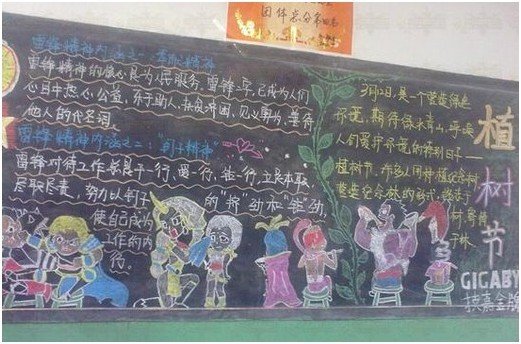 团体总分第四名
雷锋精神内涵之一：奉献精神
雷锋精神的核心是为人民服务，雷锋二字，已成为人们
心目中热心公益、乐于助人、扶贫济困、见义勇为、善待
他人的代名词
雷锋精神内涵之二："钉子精神"
雷锋对待工作总是干一行，爱一行，钻一行，立足本职
尽职尽责，努力以钉子的"挤"劲和"钻"劲，
使自己成为
工作的内
行。
3月12日，是一个营造绿色
环境，期待绿水青山，呼唤
人们爱护环境的特别日子——
植树节
树
植树节
GIGABY
技嘉金牌